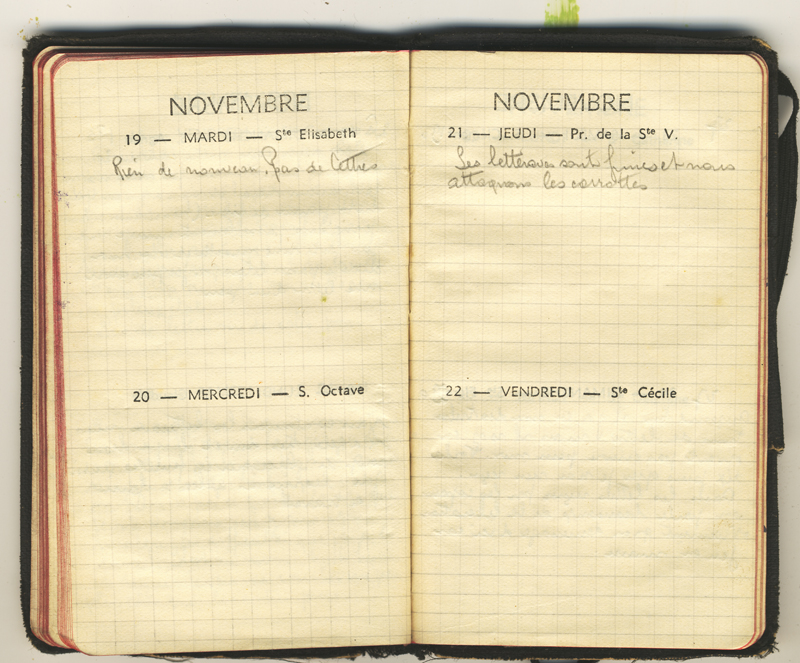 NOVEMBRE
19 — MARDI — Ste Elisabeth
Rien de nouveau, pas de lettres
20 — MERCREDI — S. Octave
NOVEMBRE
21 — JEUDI — Pr. de la Ste V.
Les betteraves sont finies et nous
attaquons les carrottes
22 — VENDREDI — Ste Cécile